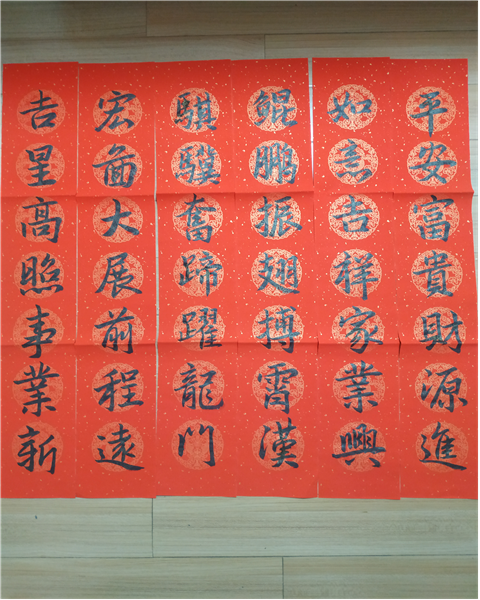 平安富貴財源進
如意吉祥家業興
鯤鵬振翅搏霄漢
騏驥奮蹄躍龍門
宏圖大展前程遠
吉星高照事業新